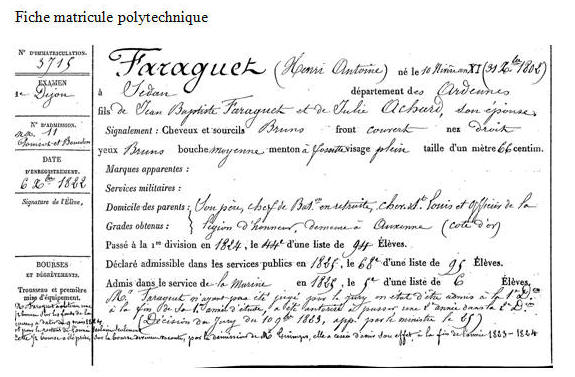 Fiche matricule polytechnique
N° D'IMMATRICULATION.
5715
EXAMEN
de Dijon
N° D'ADMISSION.
11
DATE
D'ENREGISTREMENT.
6 Xbre 1822
Signature de l'Élève,
BOURSES
ET
DÉGRÈVEMENTS.
Trousseau et première
mise d'équipement.
Faraguet (Henri Antoine) né le 10 Nivôse an XI (31 Xbre 1802)
à Sedan département des Ardennes
fils de Jean Baptiste Faraguet et de Julie Achard, son épouse
Signalement : Cheveux et sourcils Bruns front couvert nez droit
yeux Bruns bouche moyenne menton à fossette visage plein taille d'un mètre 66 centim.
Marques apparentes :
Services militaires :
Domicile des parents : Son père, chef de Baton en retraite, cher de St Louis et officier de la
Grades obtenus : Légion d'honneur, demeure à Auxonne (Côte d'or)
Passé à la 1re division en 1824, le 44e d'une liste de 94 Élèves.
Déclaré admissible dans les services publics en 1825, le 68e d'une liste de 95 Élèves.
Admis dans le service de la Marine en 1825, le 5e d'une liste de 6 Élèves.
Mr Faraguet n'ayant pas été jugé par le jury en état d'être admis à la 1re Don
à la fin de sa 1re année d'étude, a été autorisé à passer une 2e année dans la 2e Don
(Décision du Jury du 10 9bre 1823, app. par le ministre le 25)
par la démission de Mr a cessé d'avoir son effet, à la fin de l'année 1823-1824